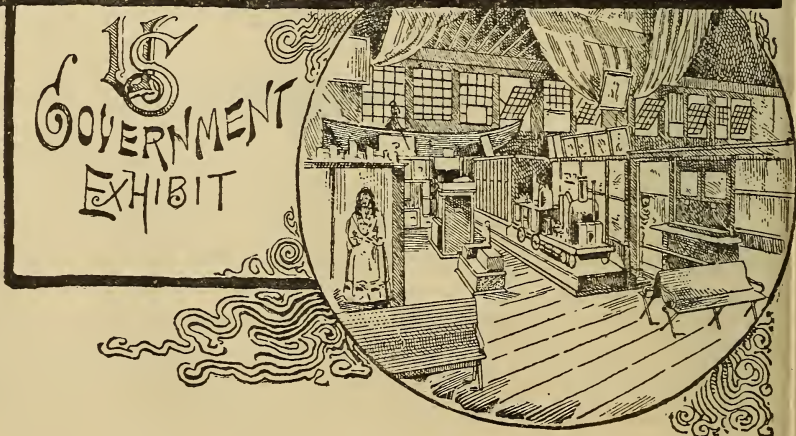 US
GOVERNMENT
EXHIBIT